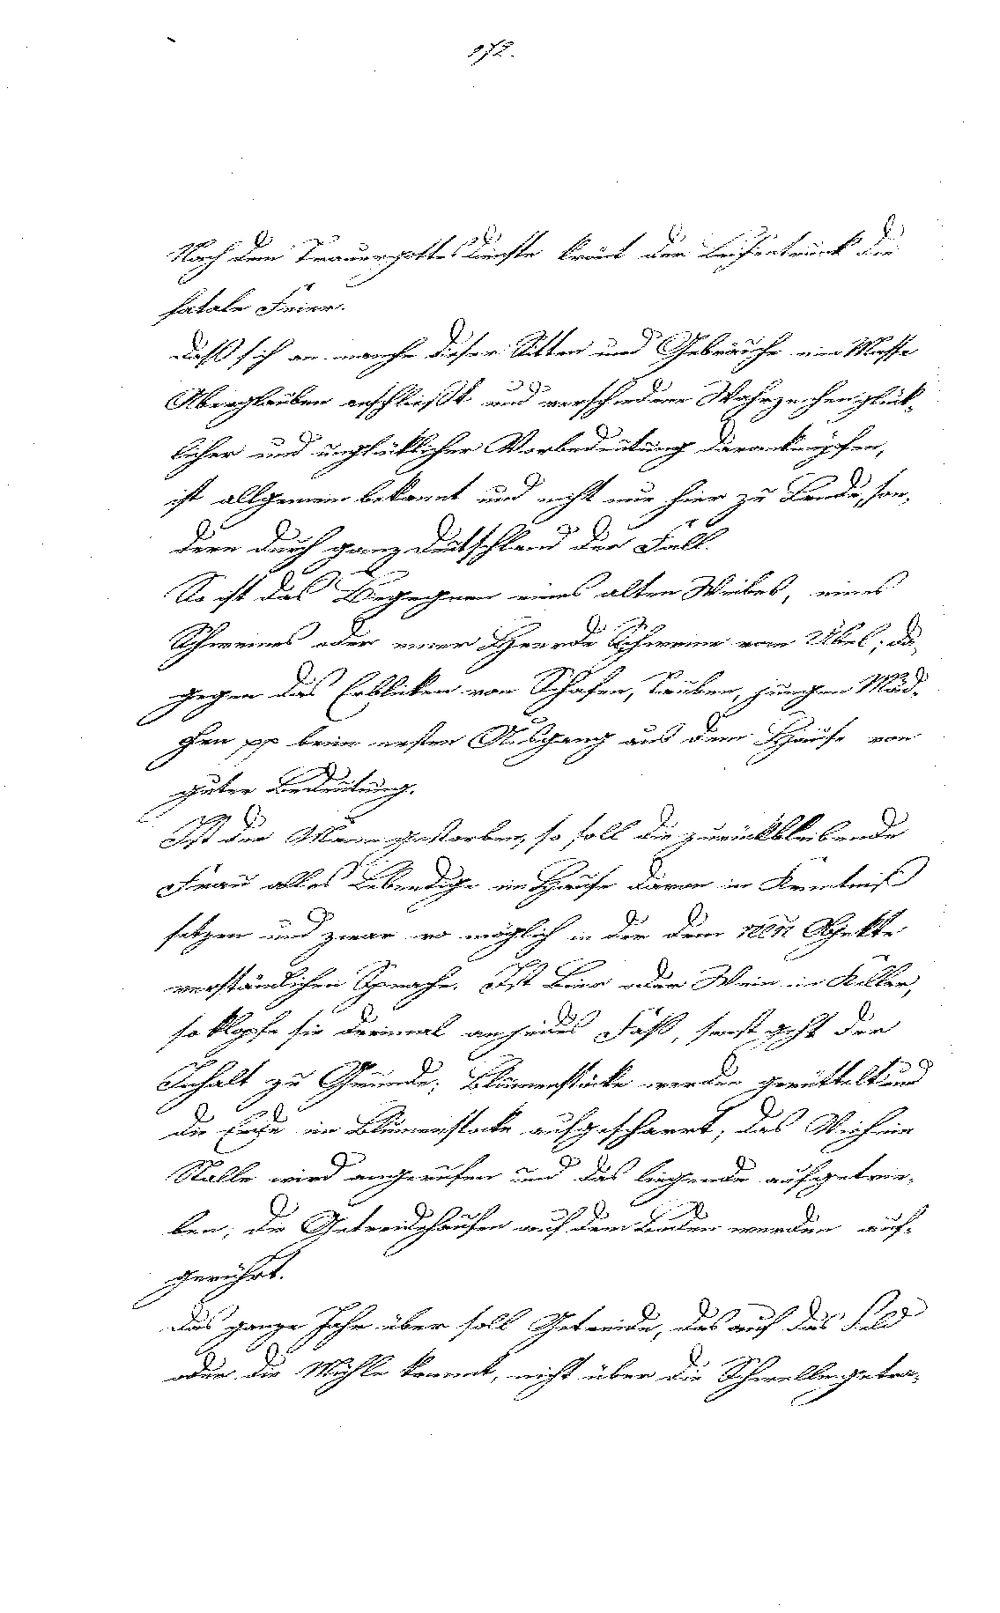 272.
Nach dem Trauergottesdienste krönt der Leichentrunk die
fatale Feier.
Daß sich an manche dieser Sitten und Gebräuche eine Masse
Aberglauben anschließt und verschiedene Wahrzeichen glük-
licher und unglüklicher Vorbedeutung daranknüpfen,
ist allgemein bekannt und nicht nur hier zu Lande, son-
dern durch ganz Deutschland der Fall.
So ist das Begegnen eines alten Weibes, eines
Schweines oder einer Heerde Schweine vom Übel; da-
gegen das Erblicken von Schafen, Tauben, jungen Mäd-
chen pp beim ersten Ausgang aus dem Hause von
guter Bedeutung.
Ist der Mann gestorben, so soll die zurückbleibende
Frau alles Lebendige im Hause davon in Kenntniß
setzen und zwar wo möglich in der dem Objekte
verständlichen Sprache. Ist Bier oder Wein im Keller,
so klopfe sie dreimal an jedes Faß, sonst geht der
Inhalt zu Grunde; Blumenstöcke werden gerüttelt und
die Erde im Blumenstocke aufgescharrt; das Vieh im
Stalle wird angerufen und das liegende aufgetrie-
ben; die Getreidehaufen auf dem Boden werden auf-
gerührt.
Das ganze Jahr über soll Getreide, das auf das Feld
oder die Mühle kommt, nicht über die Schwelle getra-